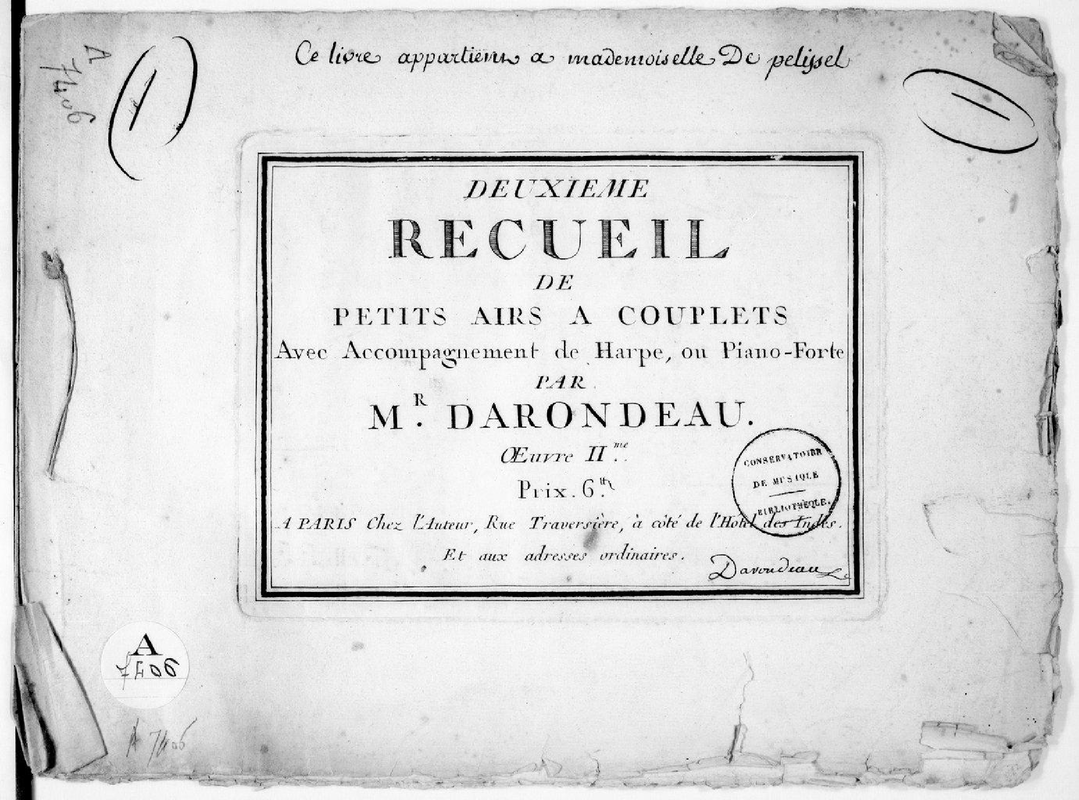 Ce livre appartient a mademoiselle De pelissel
A 7406
DEUXIEME
RECUEIL
DE
PETITS AIRS A COUPLETS
Avec Accompagnement de Harpe, ou Piano-Forte
PAR
M.R DARONDEAU.
Œuvre II.me
Prix. 6.tt
A PARIS Chez l'Auteur, Rue Traversière, à côté de l'Hôtel des Indes.
Et aux adresses ordinaires.
Darondeau
CONSERVATOIRE
DE MUSIQUE
BIBLIOTHÈQUE.
A
7406
A 7406